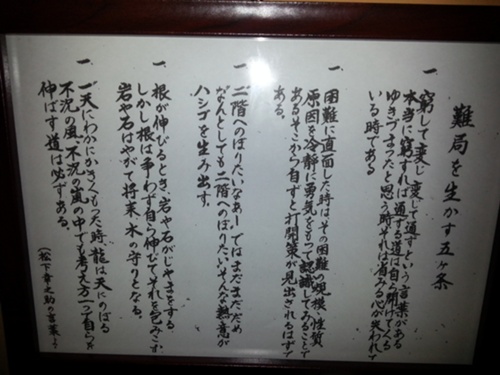 難局を生かす五ヶ条
一、窮して変じ変して通ずという言葉がある
本当に窮すれば通ずる道は自ら開けてくる
ゆきづまったと思う時それは省みる心が失われて
いる時である
一、困難に直面した時はその困難の規模、性質
原因を冷静に勇気をもって認識してみることで
あるそこから自ずと打開策が見出されるはずで
ある。
一、二階へのぼりたいなあではまだまだだめ
なんとしても二階へのぼりたいそんな熱意が
ハシゴを生み出す。
一、根が伸びるとき、岩や石がじゃまをする、
しかし根は争わず自ら伸びてそれを包みこす
岩や石はやがて将来、木の守りとなる。
一、一天にわかにかきくもった時、龍は天にのぼる
不況の風、不況の風の中でも考え方一つで自らを
伸ばす道は必ずある。
(松下幸之助の言葉より